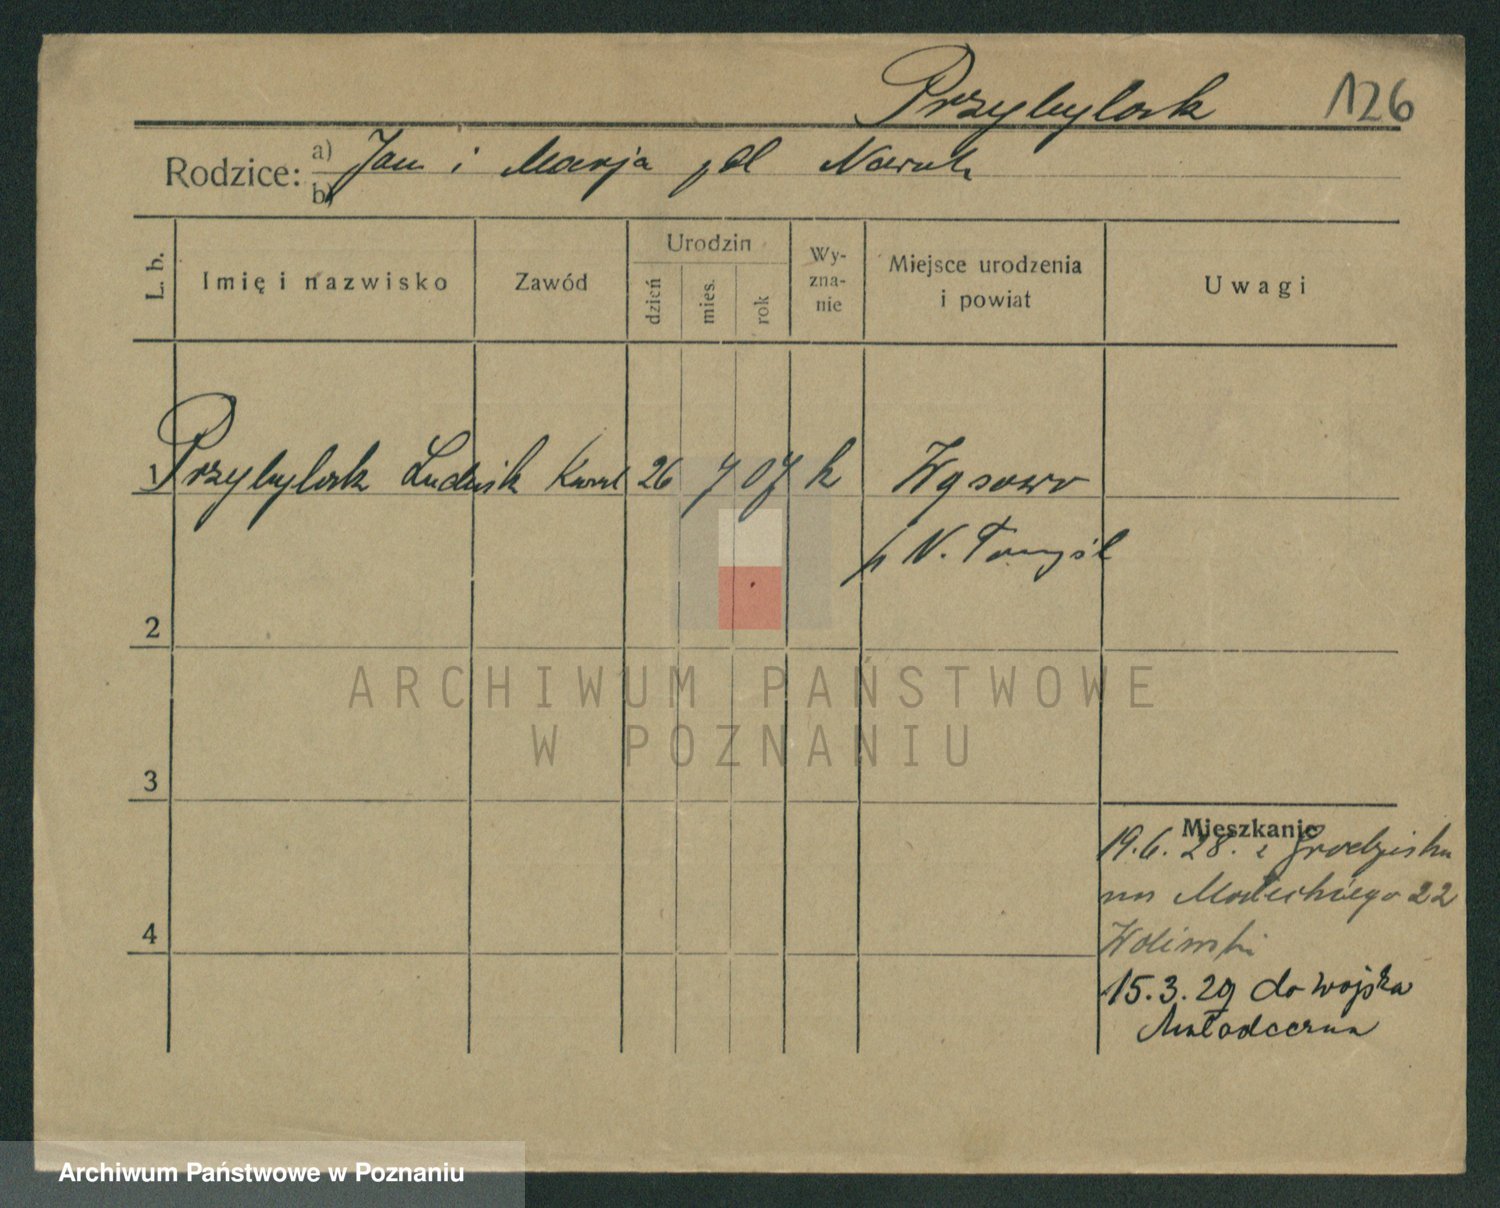 Przybylak 126
Rodzice: a) Jan i Marja zd Nowak
b)
L. b. Imię i nazwisko Zawód Urodzin dzień mies. rok Wy-zna-nie Miejsce urodzenia i powiat Uwagi
1 Przybylak Ludwik Karol 26 7 07 k Wąsowo
p N. Tomyśl
2
ARCHIWUM PAŃSTWOWE
W POZNANIU
3
Mieszkanie
19.6.28. z Grodziska
22
Woliński
4
15.3.29 do wojska
Mołodeczna
Archiwum Państwowe w Poznaniu